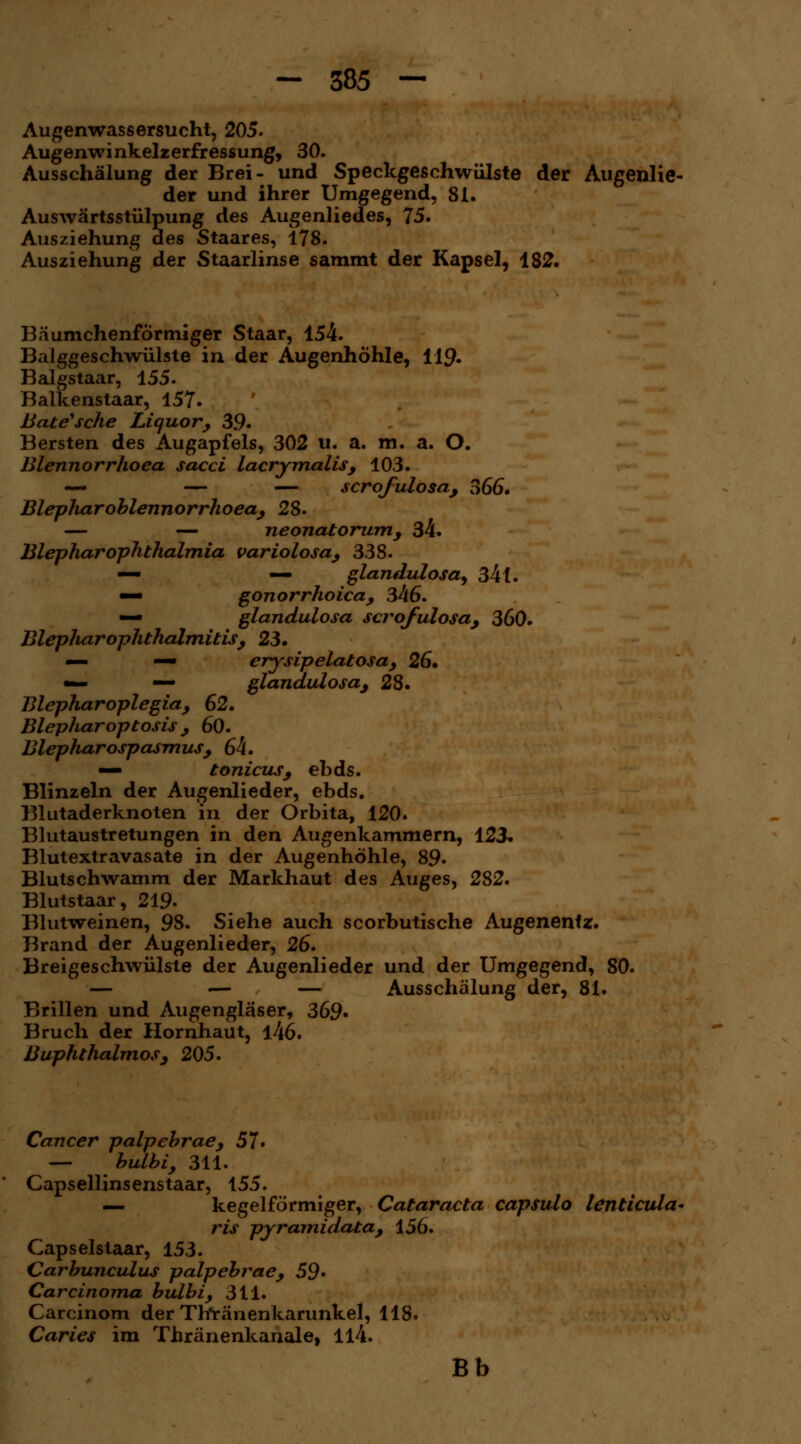 — 385 —
Augenwassersucht, 205.
Augenwinkelzerfressung, 30.
Ausschälung der Brei- und Speckgeschwülste der Augenlie-
der und ihrer Umgegend, 81.
Auswärtsstülpung des Augenliedes, 75.
Ausziehung des Staares, 178.
Ausziehung der Staarlinse sammt der Kapsel, 182.
Bäumchenförmiger Staar, 154.
Balggeschwülste in der Augenhöhle, 119.
Balgstaar, 155.
Balkenstaar, 157.
Bate'sche Liquor, 39.
Bersten des Augapfels, 302 u. a. m. a. O.
Blennorrhoea sacci lacrymalis, 103.
— — — scrofulosa, 366.
Blepharoblennorrhoea, 28.
— — neonatorum, 34.
Blepharophthalmia variolosa, 338.
— — glandulosa, 341.
— gonorrhoica, 346.
— glandulosa scrofulosa, 360.
Blepharophthalmitis, 23.
— — erysipelatosa, 26.
— — glandulosa, 28.
Blepharoplegia, 62.
Blepharoptosis, 60.
Blepharospasmus, 64.
— tonicus, ebds.
Blinzeln der Augenlieder, ebds.
Blutaderknoten in der Orbita, 120.
Blutaustretungen in den Augenkammern, 123.
Blutextravasate in der Augenhöhle, 89.
Blutschwamm der Markhaut des Auges, 282.
Blutstaar, 219.
Blutweinen, 98. Siehe auch scorbutische Augenentz.
Brand der Augenlieder, 26.
Breigeschwülste der Augenlieder und der Umgegend, 80.
— — — Ausschälung der, 81.
Brillen und Augengläser, 369.
Bruch der Hornhaut, 146.
Buphthalmos, 205.
Cancer palpebrae, 57.
— bulbi, 311.
Capsellinsenstaar, 155.
— kegelförmiger, Cataracta capsulo lenticula-
ris pyramidata, 156.
Capselstaar, 153.
Carbunculus palpebrae, 59.
Carcinoma bulbi, 311.
Carcinom der Thränenkarunkel, 118.
Caries im Thränenkanale, 114.
Bb